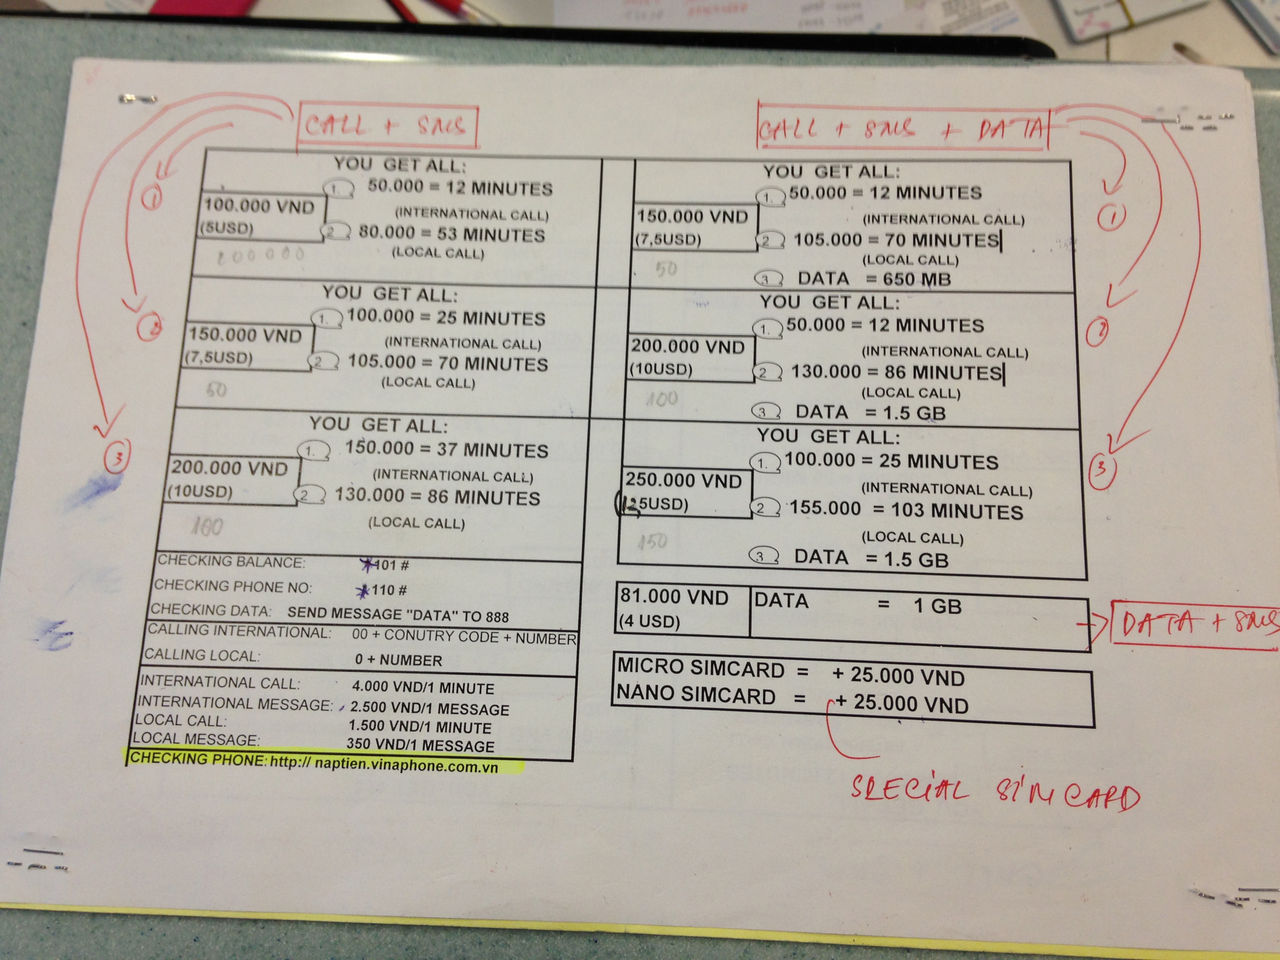 CALL + SMS
YOU GET ALL:
100.000 VND
(5USD)
1. 50.000 = 12 MINUTES
(INTERNATIONAL CALL)
2 80.000 = 53 MINUTES
(LOCAL CALL)
1
YOU GET ALL:
150.000 VND
(7,5USD)
50
1. 100.000 = 25 MINUTES
(INTERNATIONAL CALL)
2 105.000 = 70 MINUTES
(LOCAL CALL)
2
YOU GET ALL:
200.000 VND
(10USD)
100
1. 150.000 = 37 MINUTES
(INTERNATIONAL CALL)
2 130.000 = 86 MINUTES
(LOCAL CALL)
3
CHECKING BALANCE: *101 #
CHECKING PHONE NO: *110 #
CHECKING DATA: SEND MESSAGE "DATA" TO 888
CALLING INTERNATIONAL: 00 + CONUTRY CODE + NUMBER
CALLING LOCAL: 0 + NUMBER
INTERNATIONAL CALL: 4.000 VND/1 MINUTE
INTERNATIONAL MESSAGE: 2.500 VND/1 MESSAGE
LOCAL CALL: 1.500 VND/1 MINUTE
LOCAL MESSAGE: 350 VND/1 MESSAGE
CHECKING PHONE: http:// naptien.vinaphone.com.vn
CALL + SMS + DATA
YOU GET ALL:
150.000 VND
(7,5USD)
50
1. 50.000 = 12 MINUTES
(INTERNATIONAL CALL)
2 105.000 = 70 MINUTES
(LOCAL CALL)
3 DATA = 650 MB
1
YOU GET ALL:
200.000 VND
(10USD)
100
1. 50.000 = 12 MINUTES
(INTERNATIONAL CALL)
2 130.000 = 86 MINUTES
(LOCAL CALL)
3 DATA = 1.5 GB
2
YOU GET ALL:
250.000 VND
(12,5USD)
150
1. 100.000 = 25 MINUTES
(INTERNATIONAL CALL)
2 155.000 = 103 MINUTES
(LOCAL CALL)
3 DATA = 1.5 GB
3
81.000 VND
(4 USD)
DATA = 1 GB
DATA + SMS
MICRO SIMCARD = + 25.000 VND
NANO SIMCARD = + 25.000 VND
SPECIAL SIMCARD